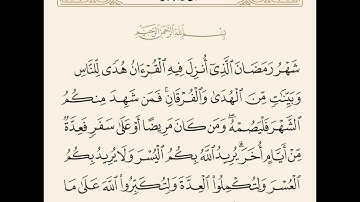 بِسْمِ ٱللَّهِ ٱلرَّحْمَٰنِ ٱلرَّحِيمِ
شَهْرُ رَمَضَانَ ٱلَّذِىٓ أُنزِلَ فِيهِ ٱلْقُرْءَانُ هُدًى لِّلنَّاسِ
وَبَيِّنَٰتٍ مِّنَ ٱلْهُدَىٰ وَٱلْفُرْقَانِ ۚ فَمَن شَهِدَ مِنكُمُ
ٱلشَّهْرَ فَلْيَصُمْهُ ۖ وَمَن كَانَ مَرِيضًا أَوْ عَلَىٰ سَفَرٍ فَعِدَّةٌ
مِّنْ أَيَّامٍ أُخَرَ ۗ يُرِيدُ ٱللَّهُ بِكُمُ ٱلْيُسْرَ وَلَا يُرِيدُ بِكُمُ
ٱلْعُسْرَ وَلِتُكْمِلُوا۟ ٱلْعِدَّةَ وَلِتُكَبِّرُوا۟ ٱللَّهَ عَلَىٰ مَا